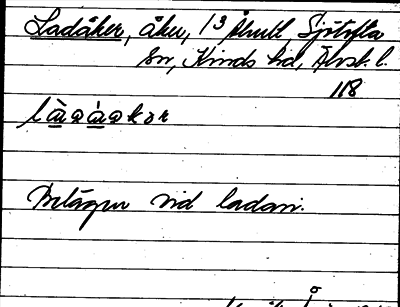 Ladåker, åker, 13 Ålnult, Sjötofta
sn, Kinds hd, Älvsb. l.
118
là̱ɑá̱ɑkər
Belägen vid ladan.